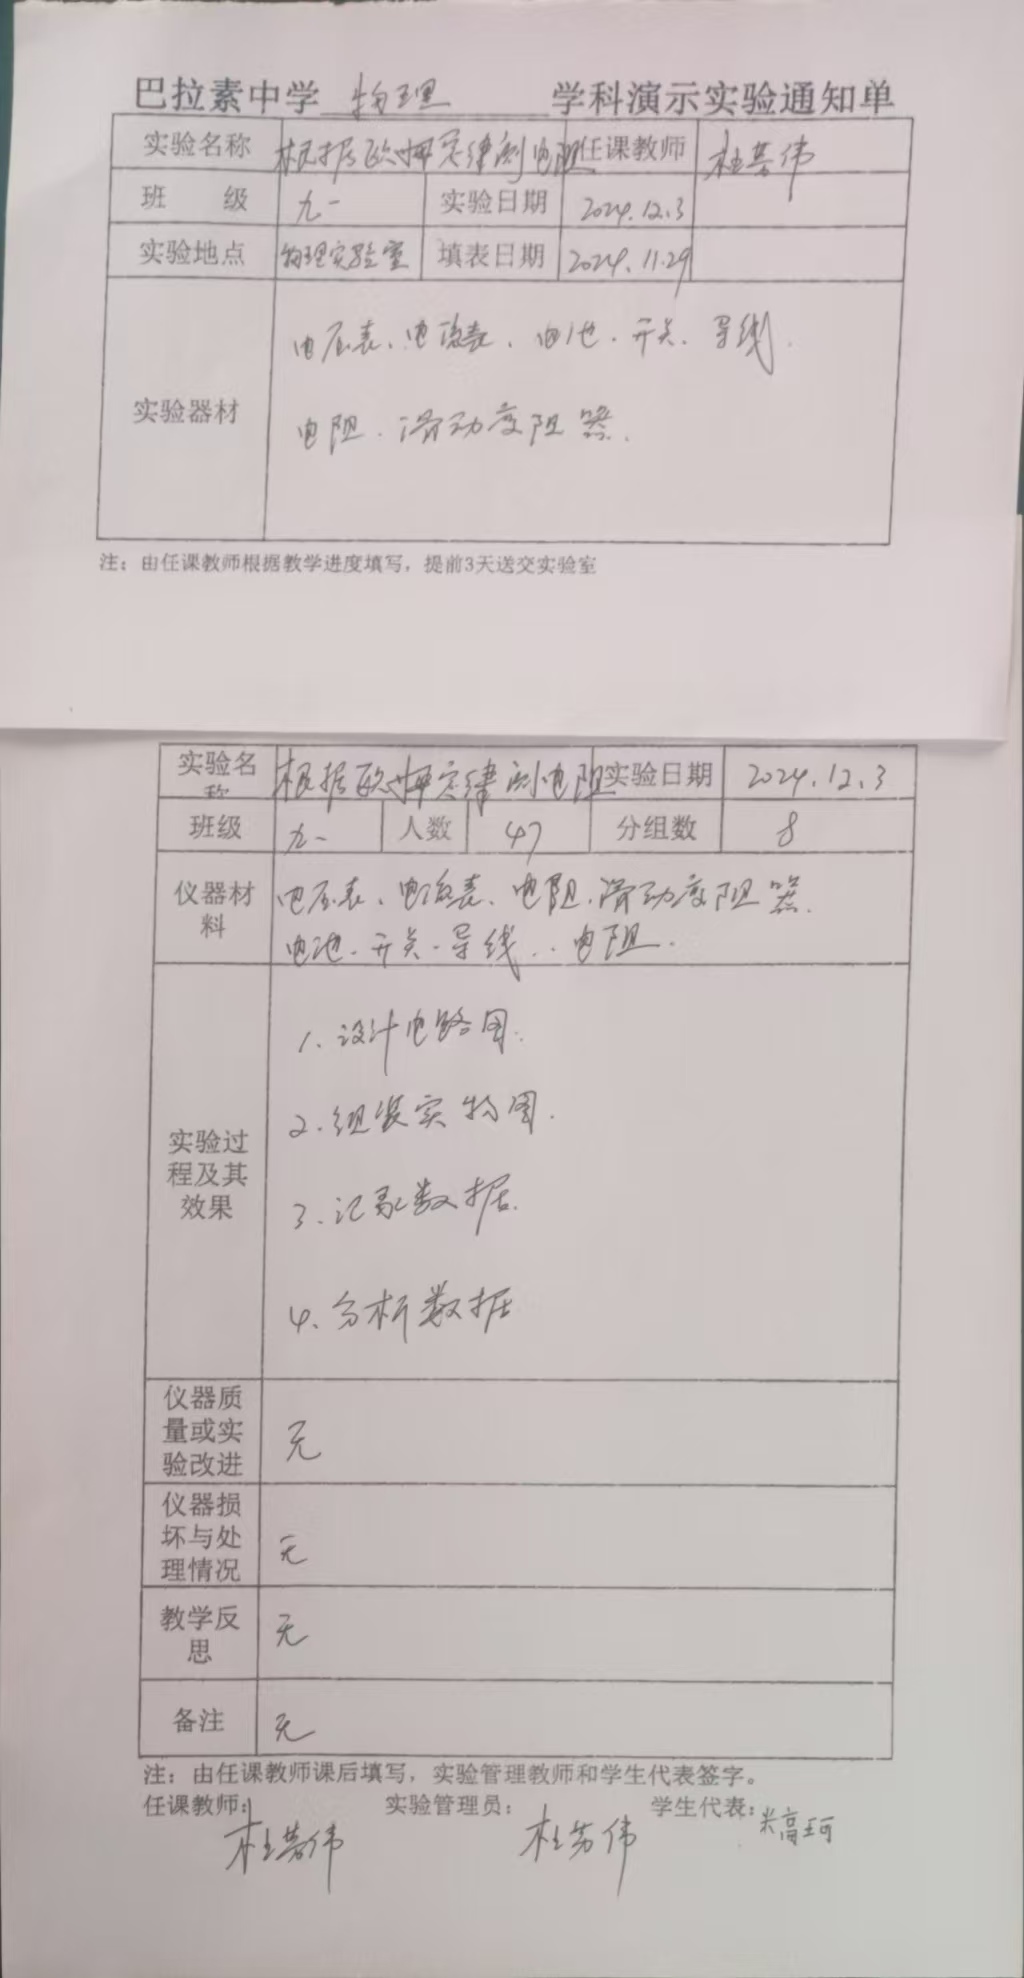 巴拉素中学 物理 学科演示实验通知单
实验名称 根据欧姆定律测电阻 任课教师 杜慧伟
班 级 九一 实验日期 2024.12.3
实验地点 物理实验室 填表日期 2024.11.29
电压表、电流表、电池、开关、导线.
实验器材
电阻、滑动变阻器.
注：由任课教师根据教学进度填写，提前3天送交实验室
实验名称 根据欧姆定律测电阻 实验日期 2024.12.3
班级 九一 人数 47 分组数 8
仪器材料 电压表、电流表、电阻、滑动变阻器.
电池、开关、导线、、电阻.
1.设计电路图.
2.组装实物图.
实验过程及其效果
3.记录数据.
4.分析数据
仪器质量或实验改进 无
仪器损坏与处理情况 无
教学反思 无
备注 无
注：由任课教师课后填写，实验管理教师和学生代表签字。
任课教师： 实验管理员： 学生代表：